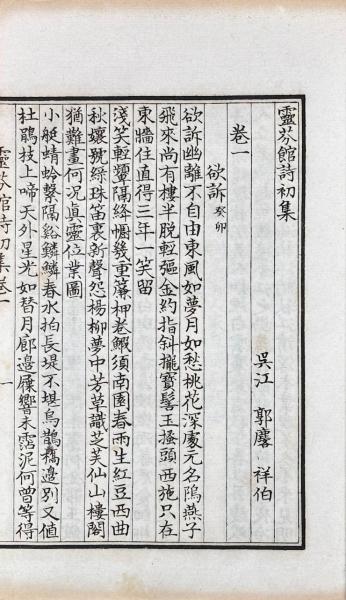 靈芬館詩初集
吳江 郭麐 祥伯
卷一
欲訴 癸卯
欲訴幽離不自由東風如夢月如愁桃花深處元名隖燕子
飛來尚有樓半脫輕彄金約指斜攏寶髻玉搔頭西施只在
東牆住直得三年一笑留
淺笑輕顰隔絳幬幾重簾柙卷鰕須南園春雨生紅豆西曲
秋孃貌綠珠笛裏新聲怨楊柳夢中芳草識芝芙仙山樓閣
猶難畫何況真靈位業圖
小艇蜻蛉繫隔谿鱗鱗春水拍長堤不堪烏鵲橋邊別又值
杜鵑枝上啼天外星光如替月廊邊屧響未霑泥何曾等得
靈芬館詩初集卷一
一